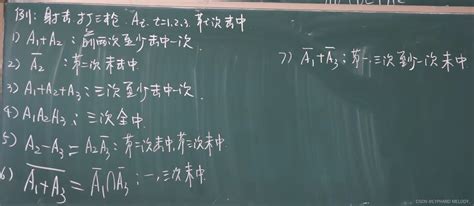 例:射击,打三枪. Ai. i=1.2.3. 第i次击中
1) A₁+A₂ : 前两次至少击中一次
2) A̅₂ : 第二次未击中
3) A₁+A₂+A₃ : 三次至少击中一次.
4) A₁A₂A₃ : 三次全中.
5) A₂-A₃ = A₂A̅₃ : 第二次击中,第三次未中.
6) \overline{A₁+A₃} = A̅₁∩A̅₃ : 一,三次未中.
7) A̅₁+A̅₃ : 第一,三次至少一次未中.